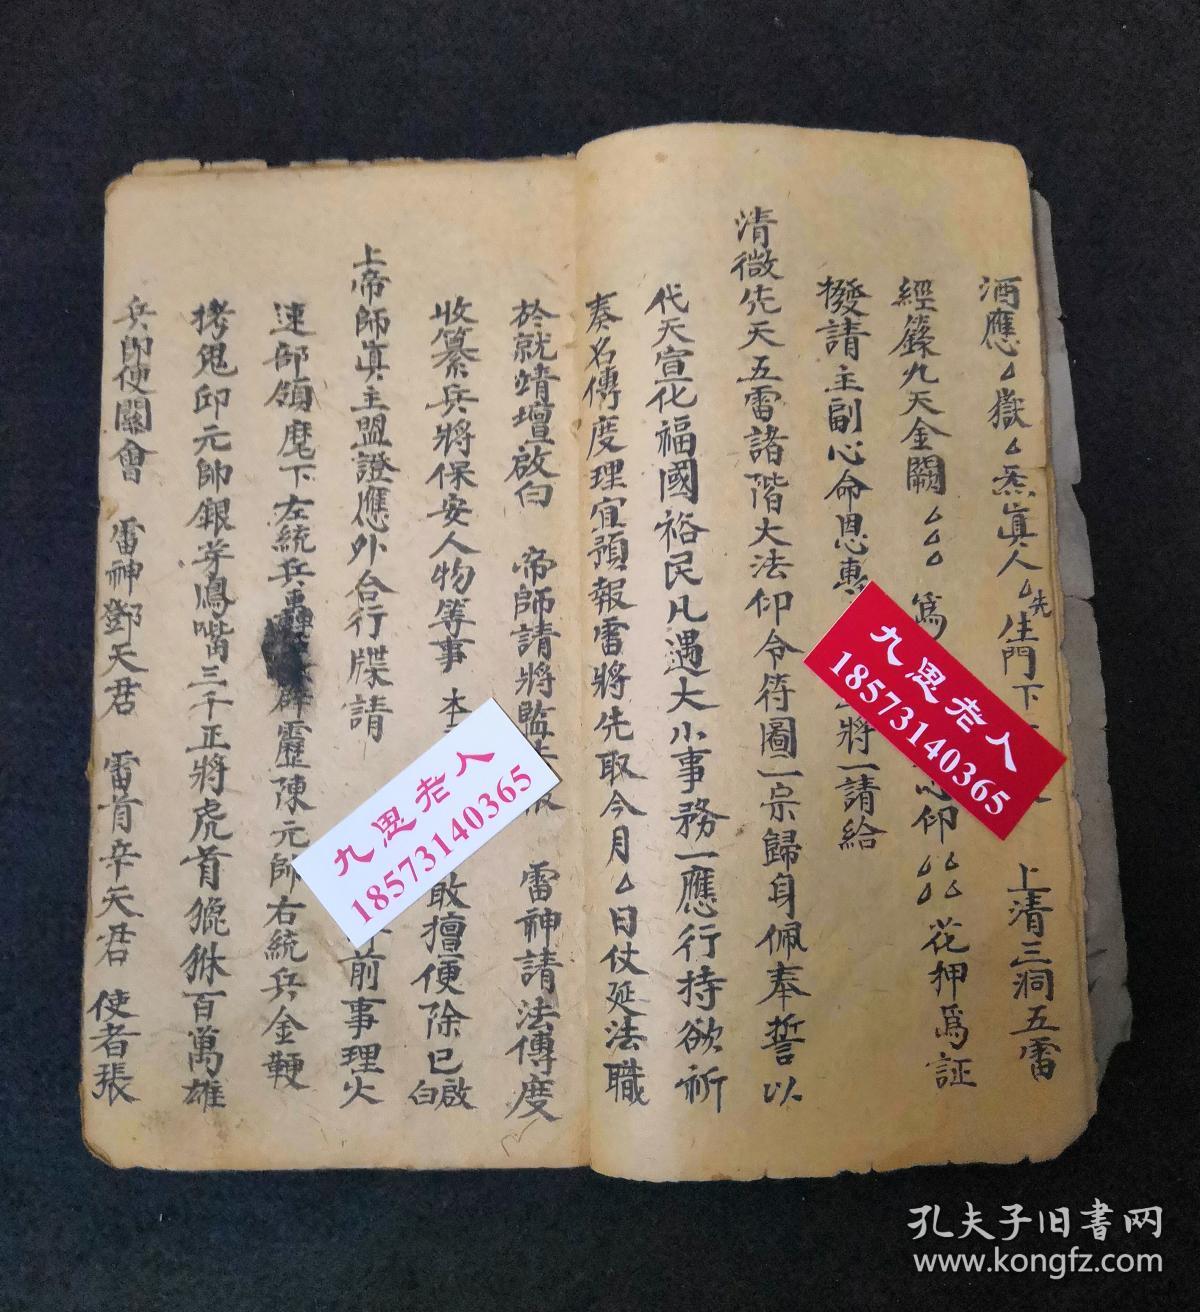 酒應△嶽△炁真人△先生門下 上清三洞五雷
經籙九天金闕△△△為 心印△△△△花押爲証
撥請主副心命恩 將一請給
清微先天五雷諸階大法印令符圖一宗歸身佩奉誓以
代天宣化福國裕民凡遇大小事務一應行持欲祈
奏名傳度理宜預報雷將先取今月△日仗延法職
於就靖壇啟白 帝師請將臨 雷神請法傳度
收纂兵將保安人物等事 本 敢擅便除已啟白
上帝師真主盟證應外合行牒請 前事理火
速部領麾下左統兵 霹靂陳元帥右統兵金鞭
拷鬼邱元帥銀牙鳥嘴三千正將虎首貔貅百萬雄
兵即使關會 雷神鄧天君 雷首辛天君 使者張
九思老人
18573140365
九思老人
18573140365
孔夫子旧書网
www.kongfz.com